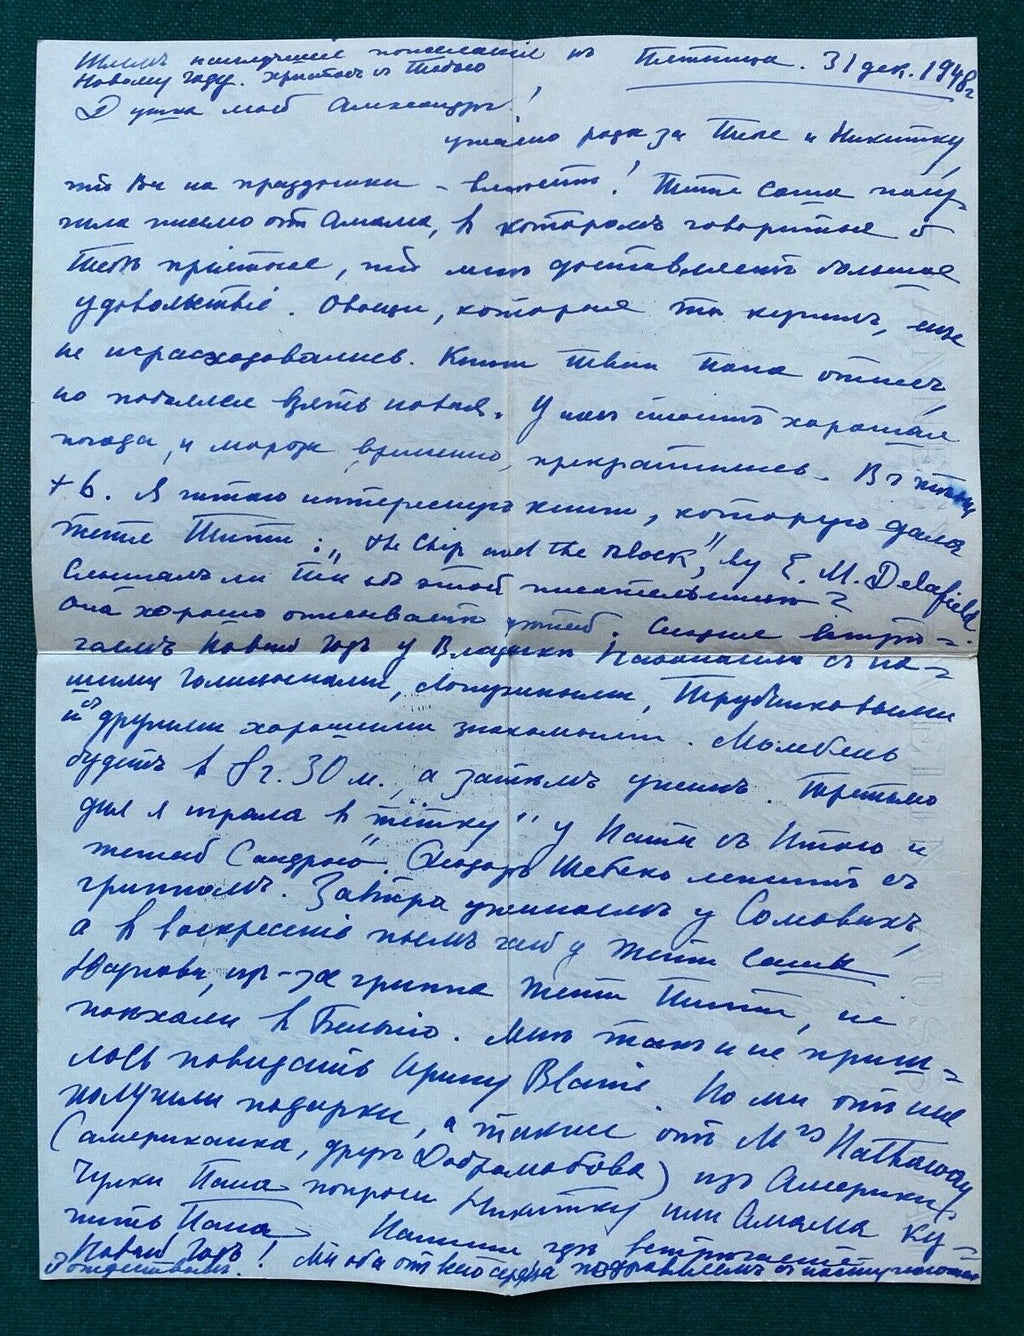 Шлемъ наилучшія пожеланія къ
Новому Году. Христосъ съ Тобою
Пятница. 31 дек. 1948 г
Душка мой Александръ!
ужасно рада за Тебя и Никитку
что Вы на праздники - вмѣстѣ! Тетя Саша полу-
чила письмо отъ Амама, в которомъ говорится о
Тебѣ пріятное, что мнѣ доставляетъ большое
удовольствіе. Овощи, которые ты купилъ, еще
не израсходовались. Книги твои Папа отнесъ
но побоялся взять новыя. У насъ стоитъ хорошая
погода, и морозы временно прекратились.
+ 6. Я читаю интересную книгу, которую дала
тетя Титти: "the Chip and the Block", by E. M. Delafield.
Слыхалъ ли Ты объ этой писательницѣ?
она хорошо описываетъ дѣтей. Сегодня встрѣ-
чаемъ Новый Годъ у Владыки съ на-
шими Голицыными, Трубниковыми
и съ другими хорошими знакомыми. Молебенъ
будетъ в 8 г. 30 м., а затѣмъ ужинъ. Третьяго
дня я играла в "тётку" у Кати съ Итою и
тетей Сандрою. Ѳеодоръ Шебеко лежитъ съ
гриппомъ. Завтра ужинаемъ у Сомовыхъ,
а в воскресеніе пьемъ чай у Тети Саши
из-за гриппа Тети Титти, не
поѣхали в Бельгію. Мнѣ такъ и не приш-
лось повидать Ирину Blame. Но мы отъ нея
получили подарки, а также отъ Mrs Hathaway
(американка, другъ Добролюбова) изъ Америки,
Чулки Папа попроси Никитку или Амама ку-
пить Папа. Напиши гдѣ встрѣчаешь
Новый Годъ! Мы оба отъ всего сердца поздравляемъ съ наступающимъ
Рождествомъ.